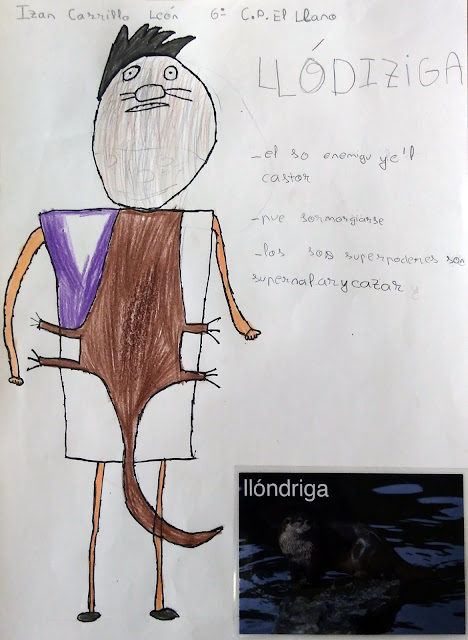 Izan Carrillo León 6º C.P. El Llano
LLÓDIZIGA
- el so enemigu ye'l
castor
- pue sormorgiarse
- los sos superpoderes son
supernalar y cazar y
llóndriga